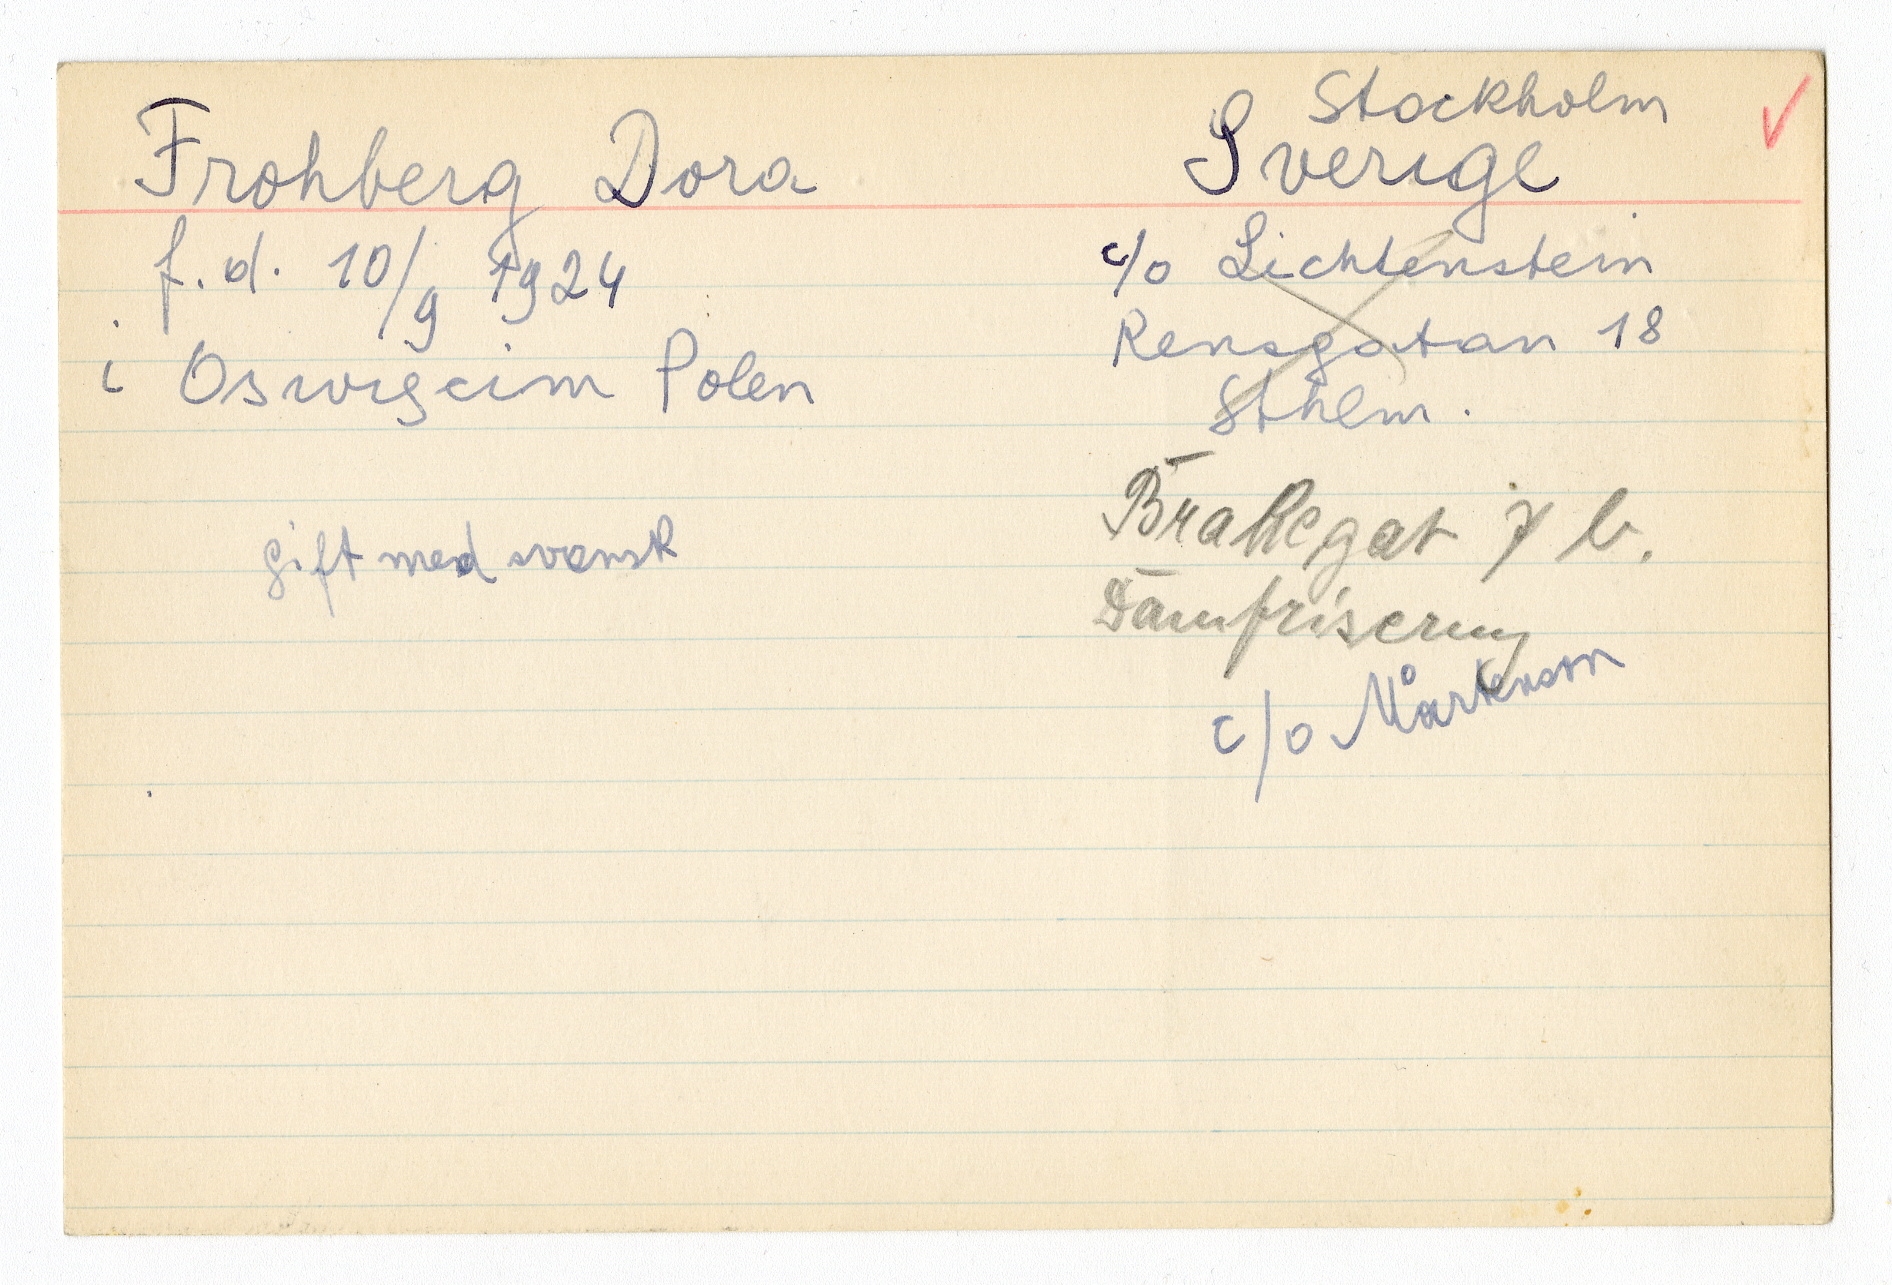 Stockholm
Frohberg Dora Sverige
f.d. 10/9 1924
i Oswigeim Polen
c/o Lichtenstein
Rensgatan 18
Sthlm.
gift med svensk
Brahegat 7 b.
Damfrisering
c/o Mårtenson